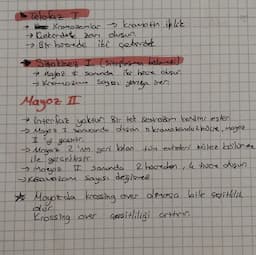 Telofaz I
→ Kromozomlar → kromatin iplik
→ Çekirdek zarı oluşur.
→ Bir hücrede iki çekirdek
Sitokinez I (Sitoplazma bölünmesi)
→ Mayoz I sonunda iki hücre oluşur.
→ Kromozom sayısı yarıya iner.
Mayoz II
→ İnterfaz yoktur. Bir tek sentrozom kendini eşler.
→ Mayoz I sonucunda oluşan n kromozomlu hücre, mayoz
II 'ye geçer.
→ Mayoz 2 'nin geri kalan tüm evreleri mitoz bölünme
ile gerçekleşir.
→ Mayoz II sonunda 2 hücreden, 4 hücre oluşur.
→ Kromozom sayısı değişmez.
Mayozda krossing over olmasa bile çeşitlilik
olur.
Krossing over çeşitliliği arttırır.